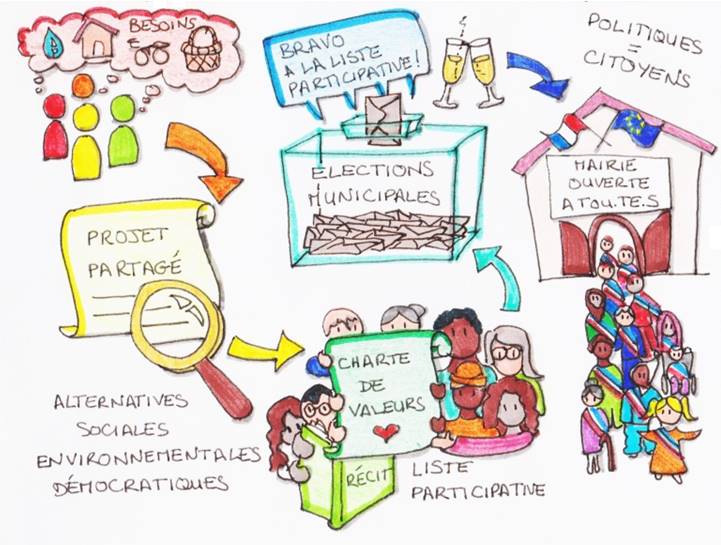 BESOINS
PROJET
PARTAGÉ
ALTERNATIVES
SOCIALES
ENVIRONNEMENTALES
DÉMOCRATIQUES
CHARTE
DE
VALEURS
RÉCIT
LISTE
PARTICIPATIVE
BRAVO
A LA LISTE
PARTICIPATIVE!
ELECTIONS
MUNICIPALES
POLITIQUES
=
CITOYENS
MAIRIE
OUVERTE
A TOU.TE.S